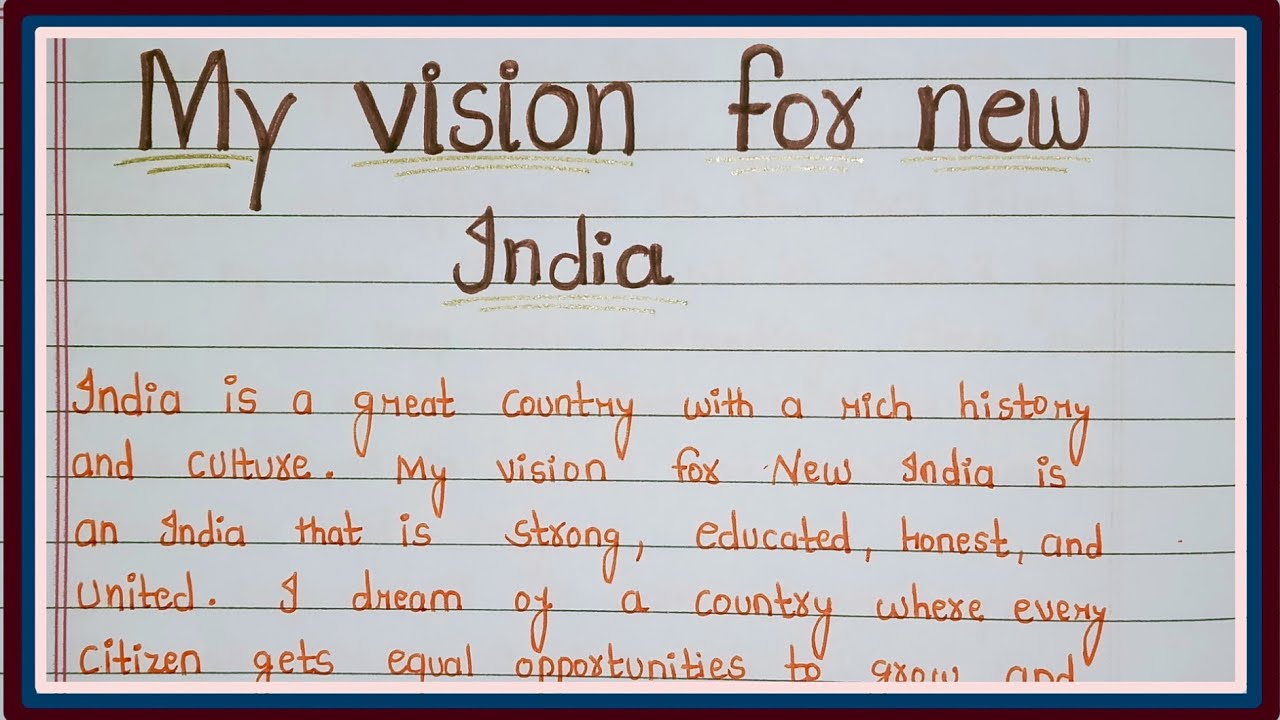 My vision for new
India
India is a great country with a rich history
and culture. My vision for New India is
an India that is strong, educated, honest, and
united. I dream of a country where every
citizen gets equal opportunities to grow and